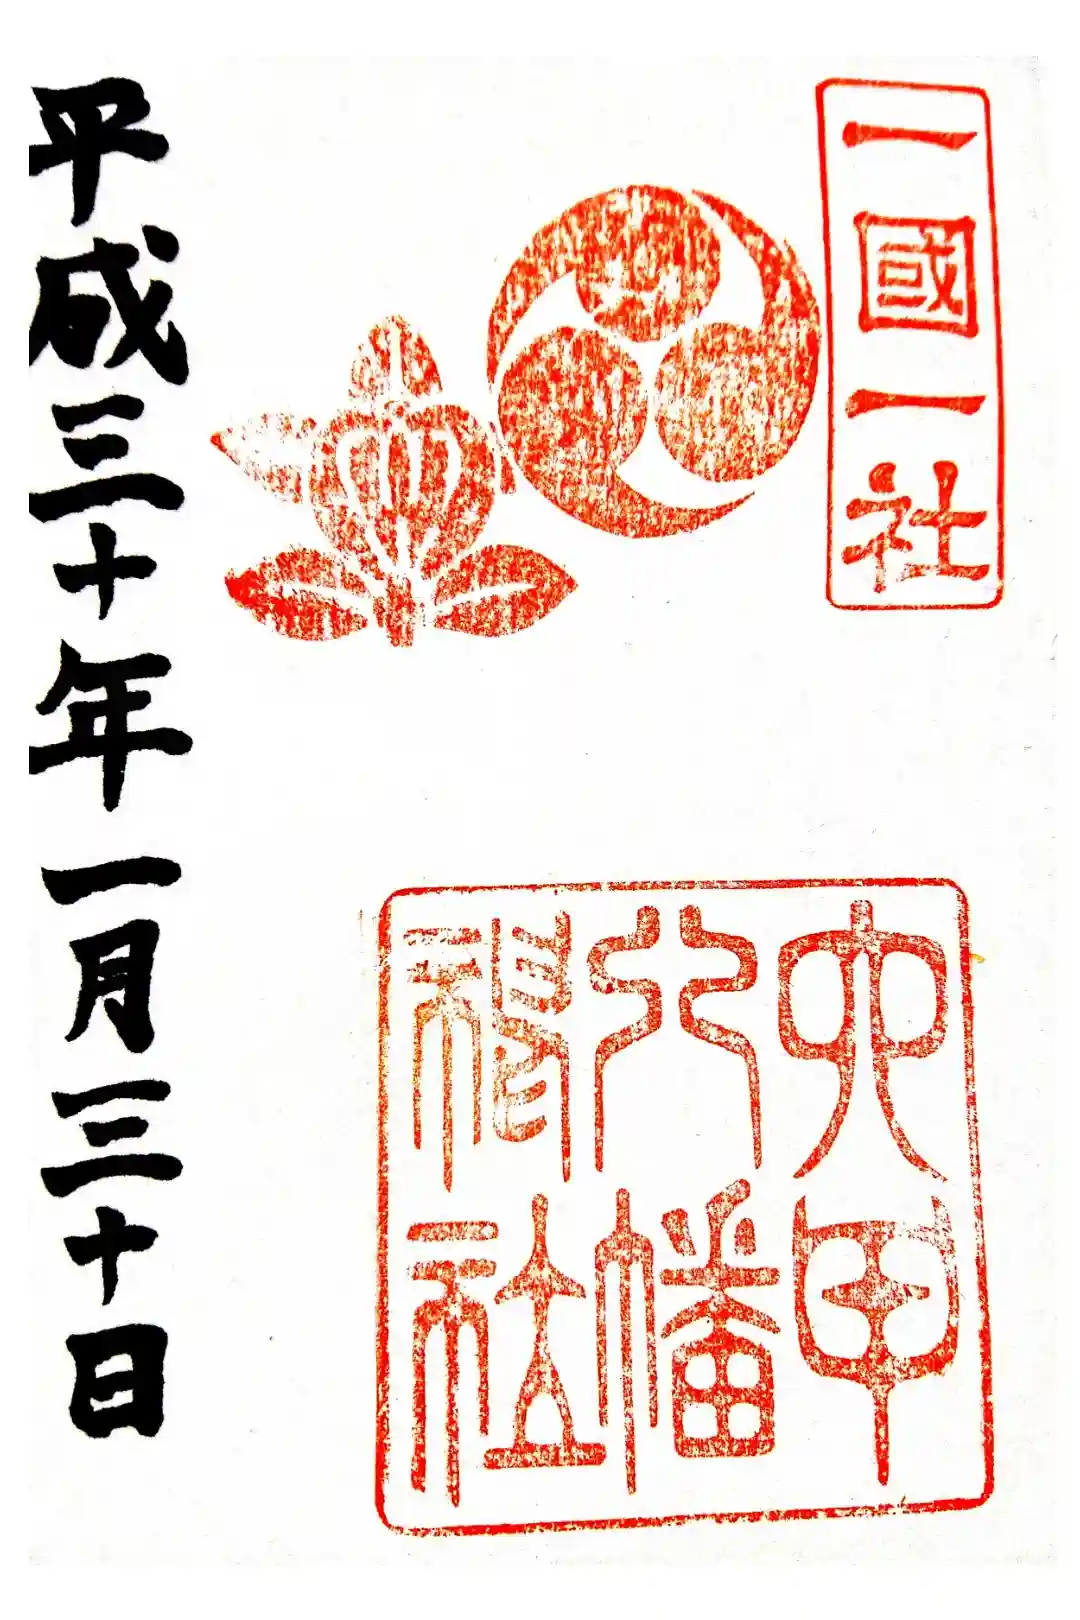 一國一社
六甲
八幡
神社
平成三十年一月三十日